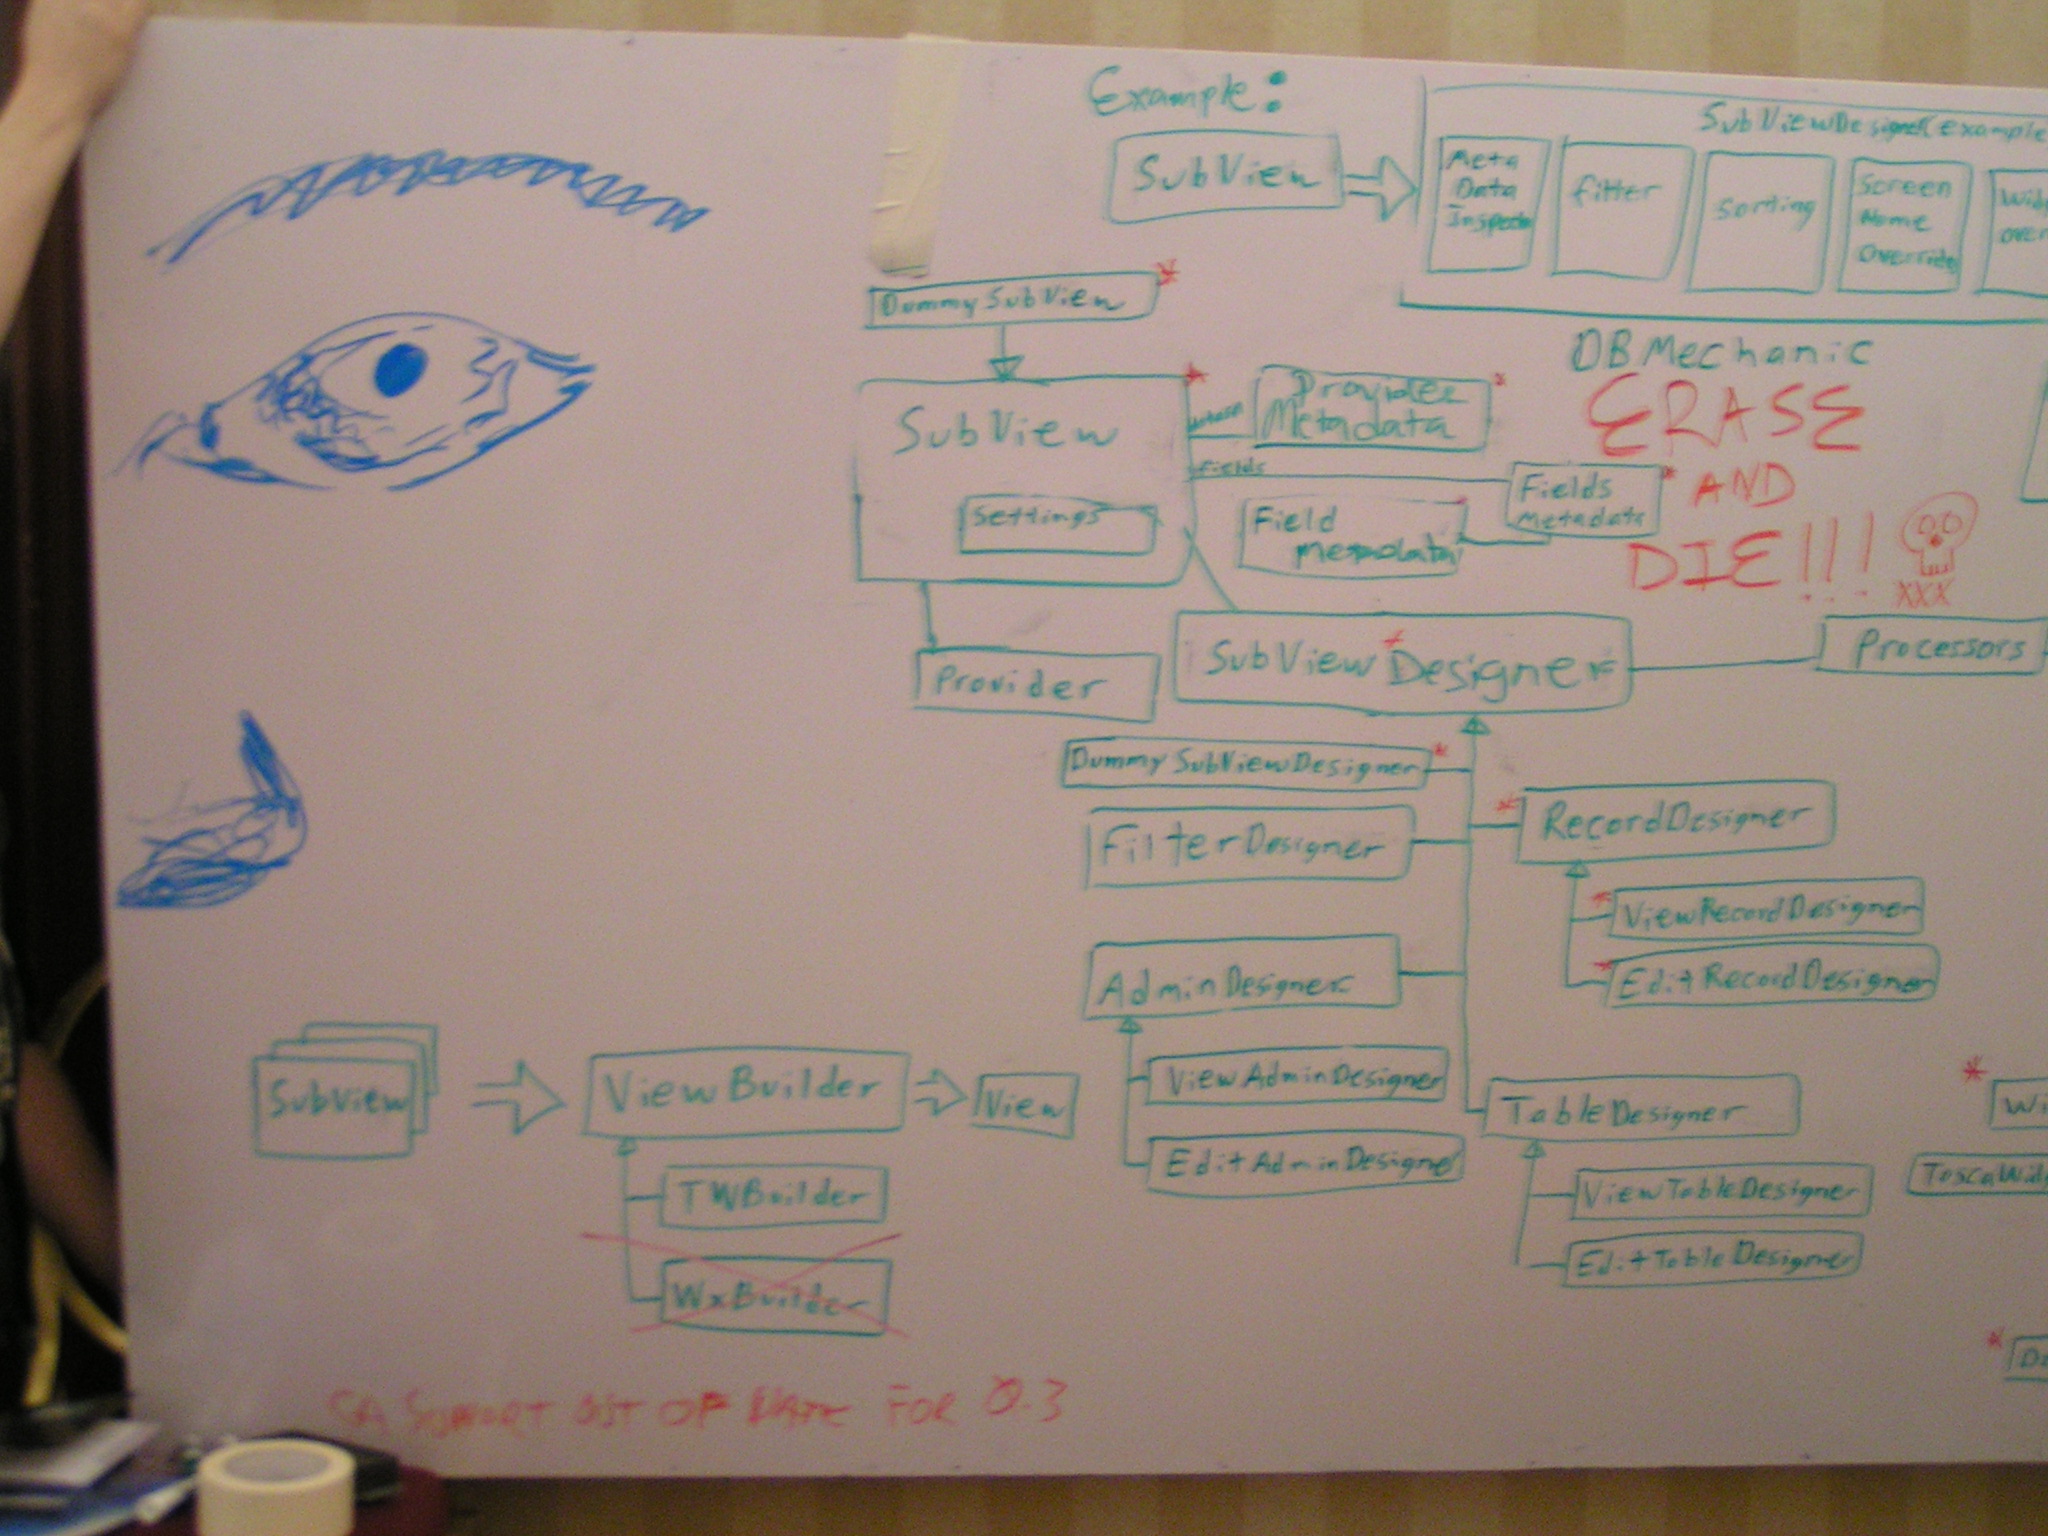 Example:
SubViewDesigner(example
SubView
Meta
Data
Filter
Sorting
Screen
Name
Override
DummySubView
DBMechanic
ERASE
AND
DIE!!!
XXX
SubView
Settings
Provider
Metadata
Fields
Fields
Metadata
Field
Metadata
Provider
SubViewDesigner
Processors
DummySubViewDesigner
FilterDesigner
RecordDesigner
ViewRecordDesigner
EditRecordDesigner
AdminDesigner
ViewAdminDesigner
EditAdminDesigner
TableDesigner
ViewTableDesigner
EditTableDesigner
SubView
ViewBuilder
View
TWBuilder
WxBuilder
Wi
ToscaWidg
SUPPORT OUT OF FOR 0.3